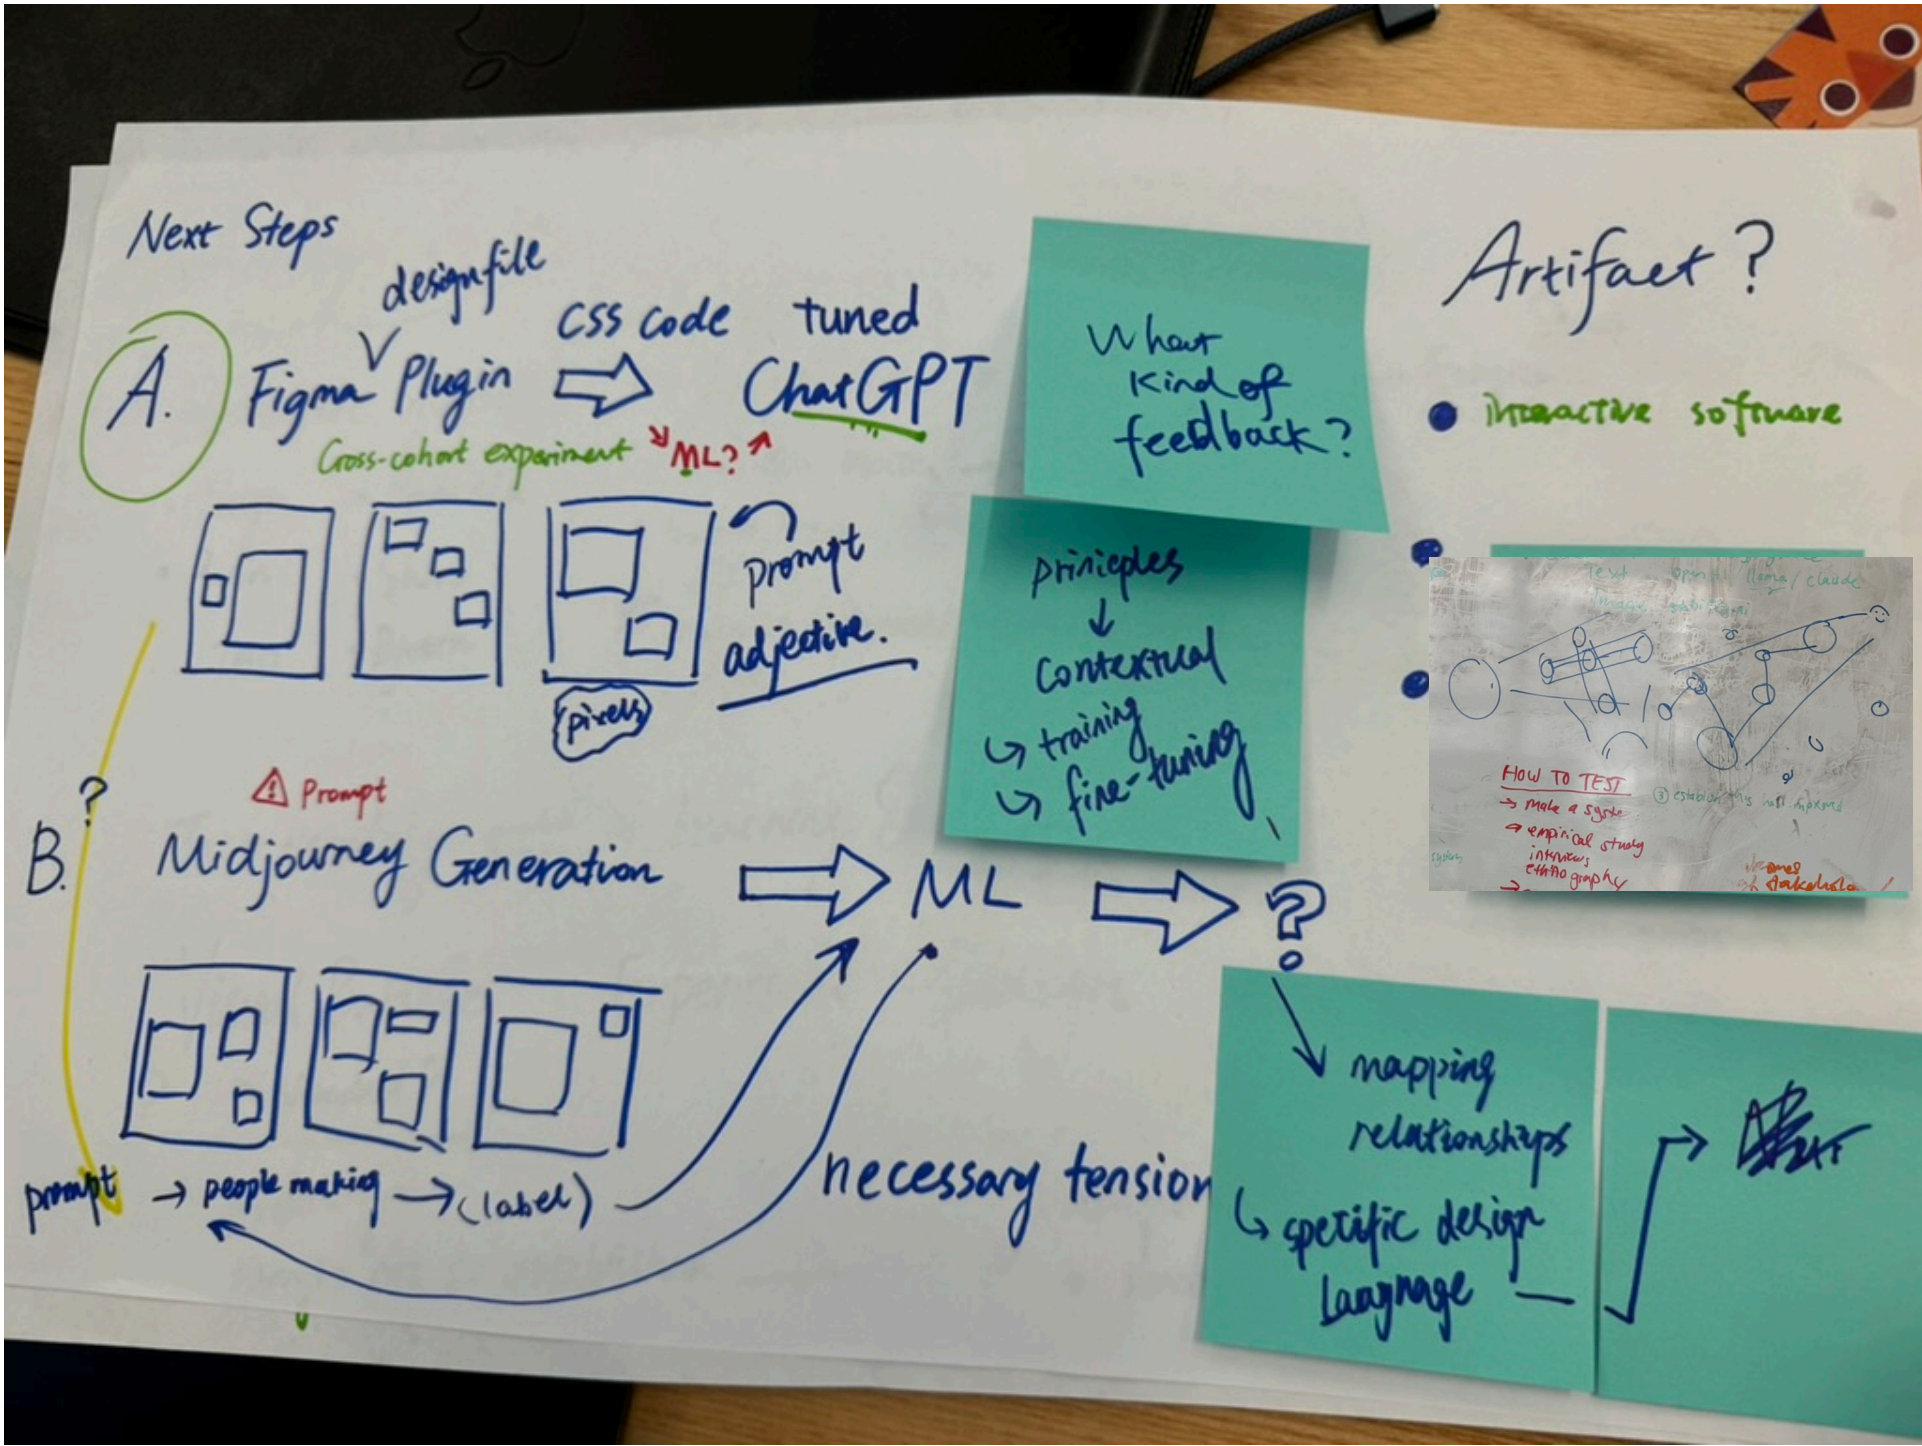 Next Steps
design file
A. Figma Plugin
CSS code
tuned
ChatGPT
Cross-cohort experiment
ML?
prompt
adjective.
pixels
?
Prompt
B. Midjourney Generation
ML
?
prompt → people making → (label)
necessary tension
What
kind of
feedback?
prinicples
↓
contextual
↳ training
↳ fine-tuning
mapping
relationships
↳ specific design
language
Artifact?
• interactive software
Test
llama / claude
HOW TO TEST
→ make a syste
→ empirical study
interviews
ethnography
③ establish this
system